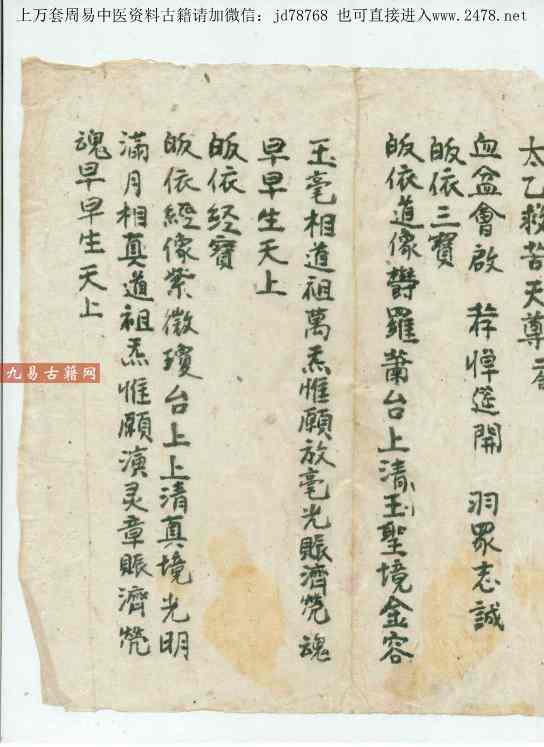 上万套周易中医资料古籍请加微信：jd78768 也可直接进入www.2478.net
太乙救苦天尊
血盆會啟 筵開 羽眾志誠
皈依三寶
皈依道像欝羅蕭台上清玉聖境金容
玉毫相道祖萬炁惟願放毫光賑濟茕魂
早早生天上
皈依经寶
皈依經像紫微瓊台上上清真境光明
滿月相真道祖炁惟願演灵章賑濟茕
魂早早生天上
九易古籍网